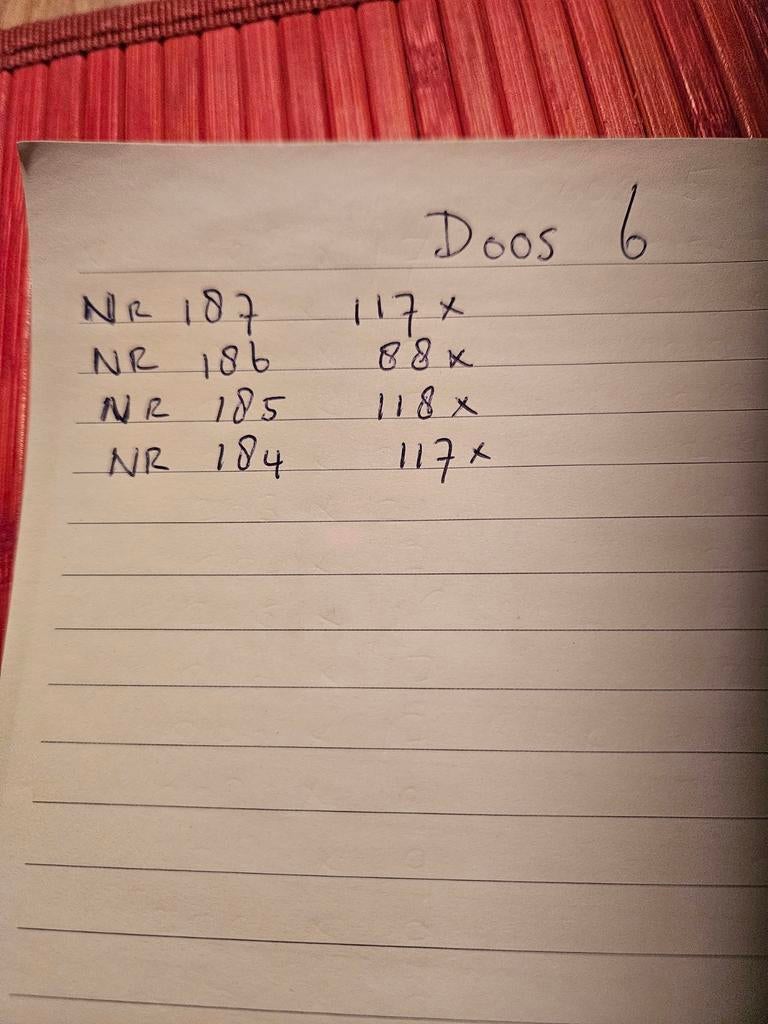 Doos 6
NR 187 117 x
NR 186 88 x
NR 185 118 x
NR 184 117 x